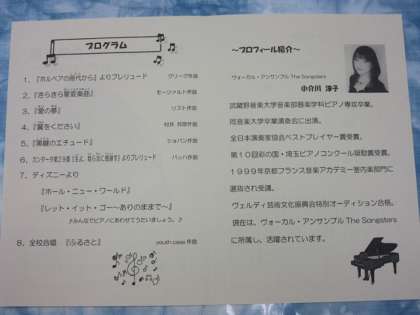 プログラム
1.『ホルベアの時代から』よりプレリュード グリーグ作曲
2.『きらきら星変奏曲』 モーツァルト作曲
3.『愛の夢』 リスト作曲
4.『翼をください』 村井 邦彦作曲
5.『黒鍵のエチュード』 ショパン作曲
6. カンタータ第29番『神よ、我ら汝に感謝す』よりプレリュード バッハ作曲
7. ディズニーより
『ホール・ニュー・ワールド』
『レット・イット・ゴー～ありのままで～』
♪みんなでピアノにあわせてうたいましょう。♪
8. 全校合唱 『ふるさと』 youth case 作曲
～プロフィール紹介～
ヴォーカル・アンサンブル The Songsters
小介川 淳子
武蔵野音楽大学音楽部器楽学科ピアノ専攻卒業。
同音楽大学卒業演奏会に出演。
全日本演奏家協会ベストプレイヤー賞受賞。
第10回彩の国・埼玉ピアノコンクール奨励賞受賞。
1999年京都フランス音楽アカデミー室内楽部門に
選抜され受講。
ヴェルディ芸術文化振興会特別オーディション合格。
現在は、ヴォーカル・アンサンブル The Songsters
に所属し、活躍されています。